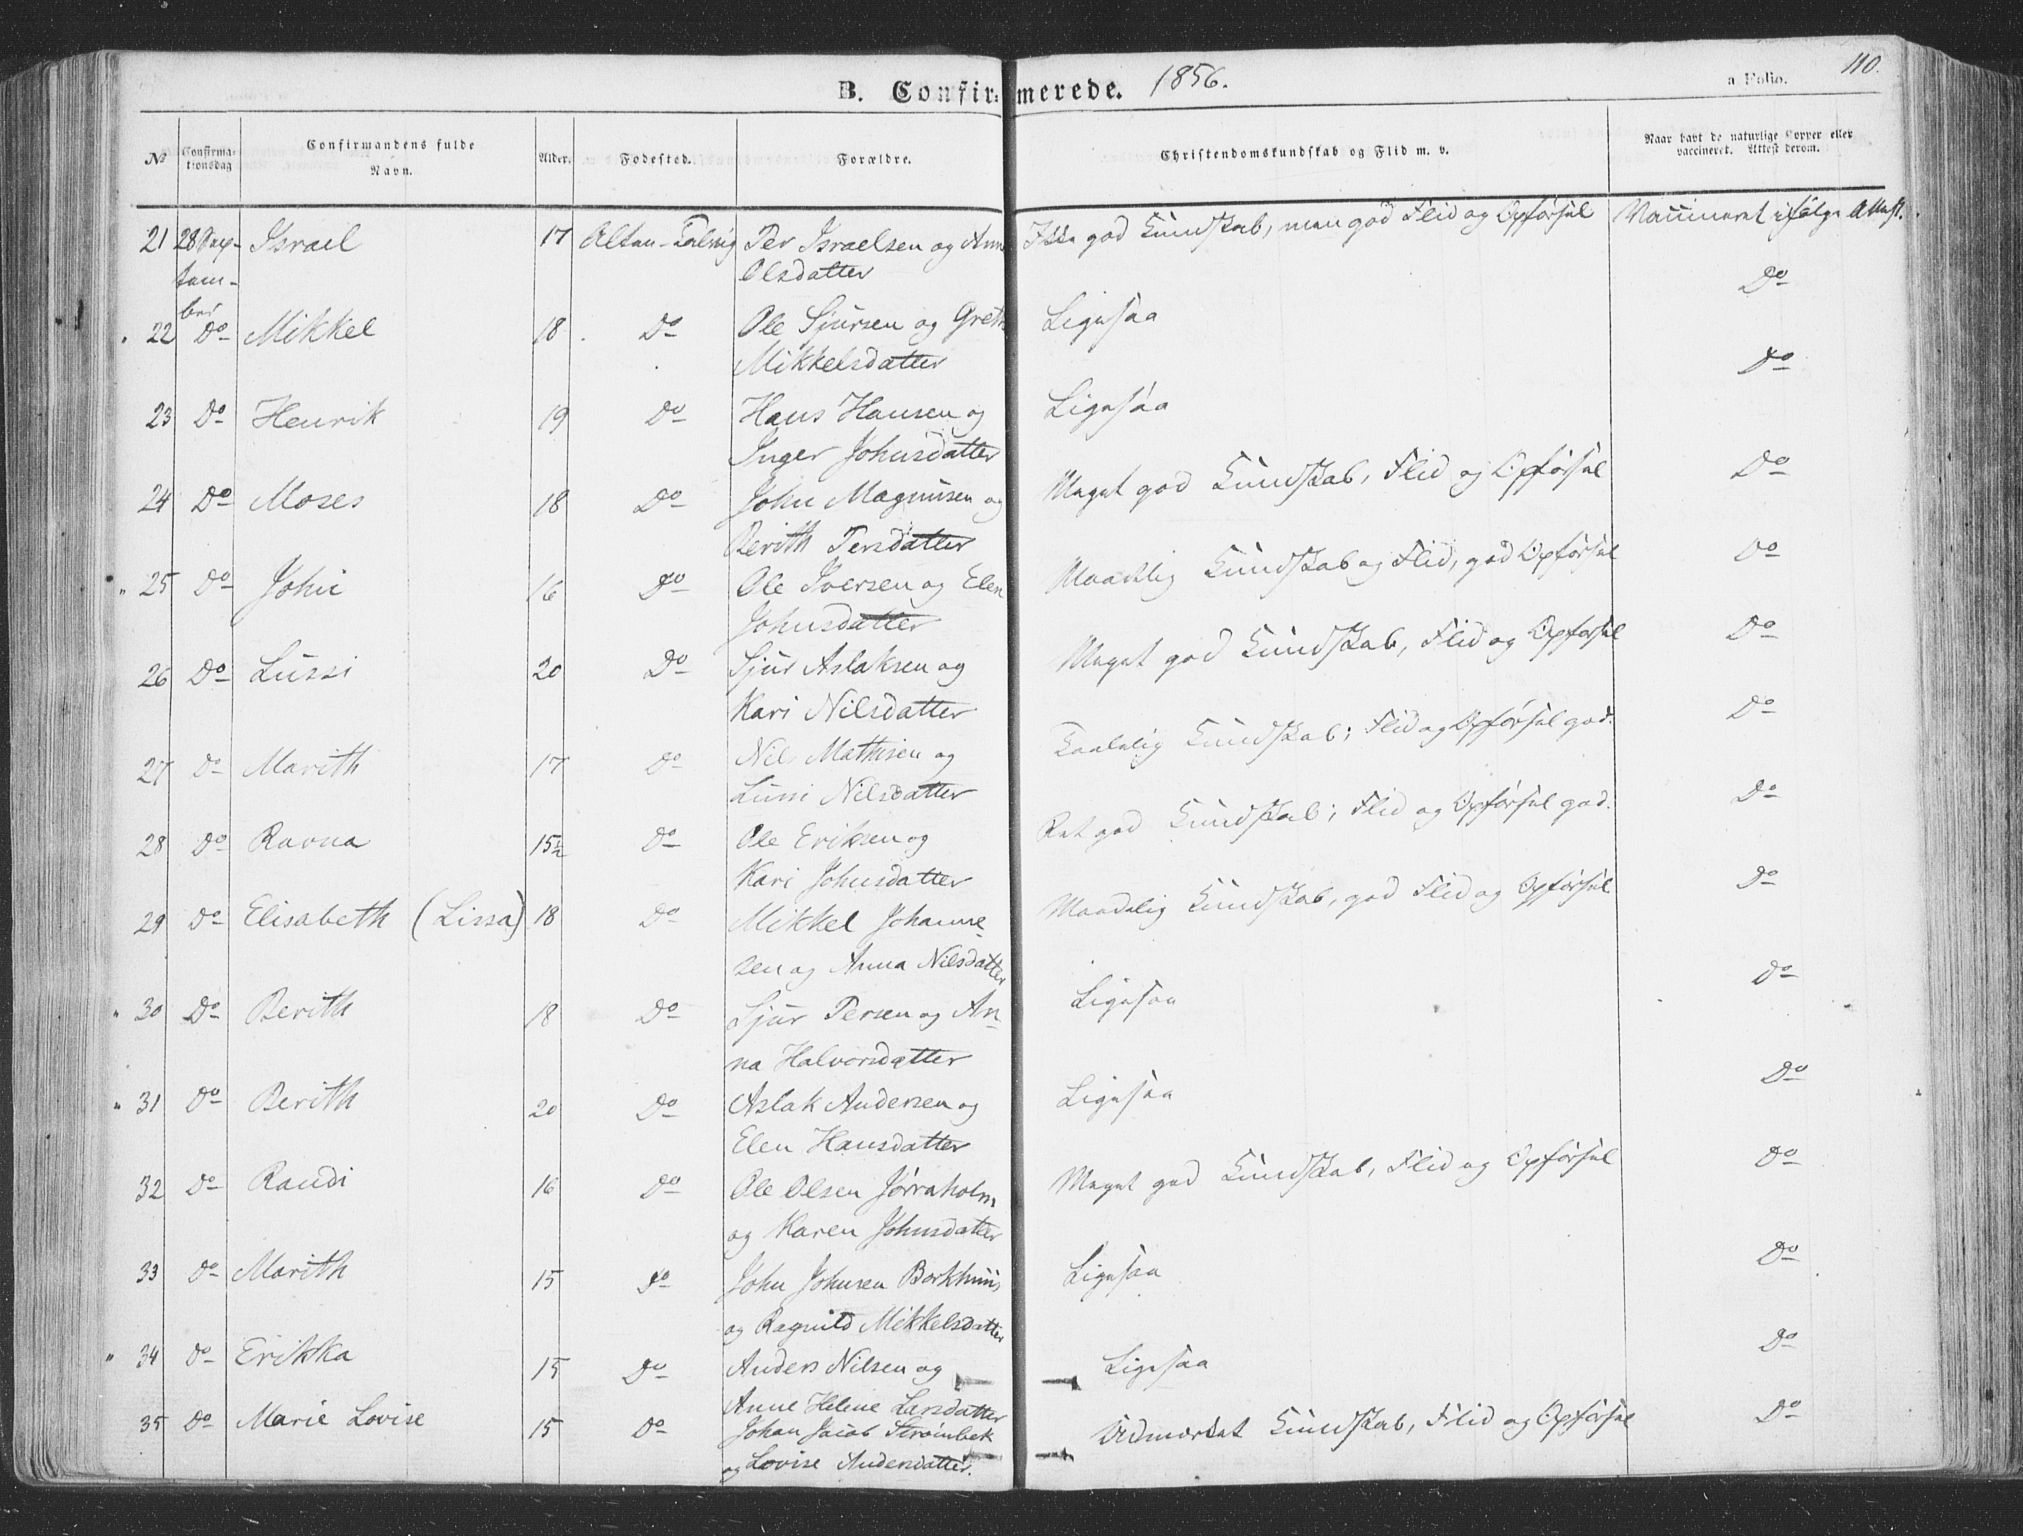 B. Confirmerede. 1856. a Folio. 110.
No Confirmationsdag Confirmandens fulde Navn. Alder. Fødested. Forældre. Christendomskundskab og Flid m. v. Naar havt de naturlige Copper eller vaccineret. Attest derom.
21 28 Sep- Israel 17 Alten-Talvig Per Israelsen og Anne Ikke god Kundskab, men god Flid og Opførsel Vaccineret ifølge Attest.
tem- Olsdatter
ber
22 Do Mikkel 18 Do Ole Sjursen og Grete Ligesaa Do
Mikkelsdatter
23 Do Henrik 19 Do Hans Hansen og Ligesaa Do
Inger Johnsdatter
24 Do Moses 18 Do John Magnusen og Meget god Kundskab, Flid og Opførsel Do
Berith Persdatter
25 Do John 16 Do Ole Iversen og Elen Maadelig Kundskab og Flid, god Opførsel Do
Johnsdatter
26 Do Lussi 20 Do Sjur Aslaksen og Meget god Kundskab, Flid og Opførsel Do
Kari Nilsdatter
27 Do Marith 17 Do Nils Mathisen og Taalelig Kundskab; Flid og Opførsel god. Do
Lussi Nilsdatter
28 Do Ravna 15½ Do Ole Eriksen og Ret god Kundskab; Flid og Opførsel god. Do
Kari Johnsdatter
29 Do Elisabeth (Lissa) 18 Do Mikkel Johanne- Maadelig Kundskab, god Flid og Opførsel Do
sen og Anna Nilsdatter
30 Do Berith 18 Do Sjur Persen og An- Ligesaa Do
na Halvorsdatter
31 Do Berith 20 Do Aslak Andersen og Ligesaa Do
Elen Hansdatter
32 Do Randi 16 Do Ole Olsen Jørraholm Meget god Kundskab, Flid og Opførsel Do
og Karen Johnsdatter
33 Do Marith 15 Do John Johnsen Borkhuus Ligesaa Do
og Ragnild Mikkelsdatter
34 Do Erikka 15 Do Anders Nilsen og Ligesaa Do
Anne Helene Larsdatter
35 Do Marie Lovise 15 Do Johan Jacob Strømbek Udmærket Kundskab, Flid og Opførsel Do
og Lovise Andersdatter.